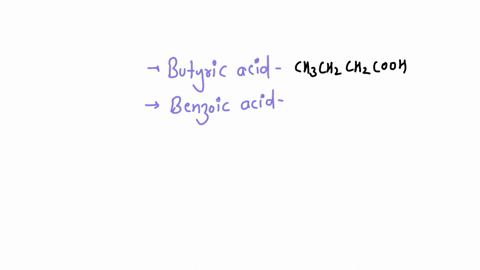 → Butyric acid- CH3CH2CH2COOH
→ Benzoic acid-